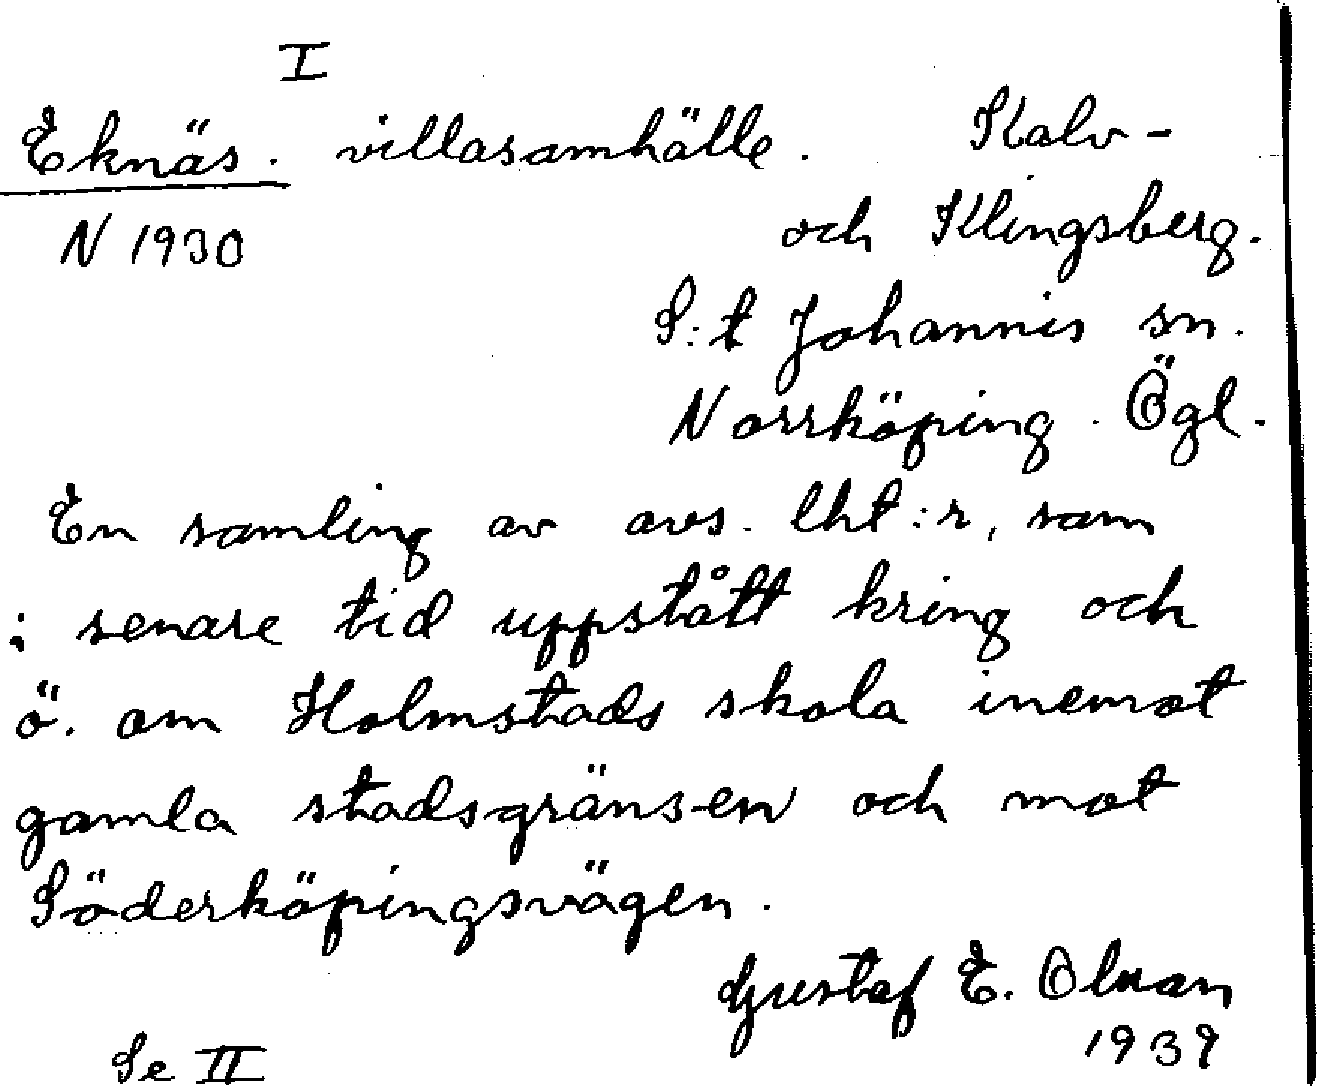 I
Eknäs. villasamhälle. Kalv-
N 1930 och Klingsberg.
S:t Johannis sn.
Norrköping. Ögl.
En samling av avs. lht:r, som
i senare tid uppstått kring och
ö. om Holmstads skola inemot
gamla stadsgränsen och mot
Söderköpingsvägen.
Gustaf E. Olsson
1939
Se II